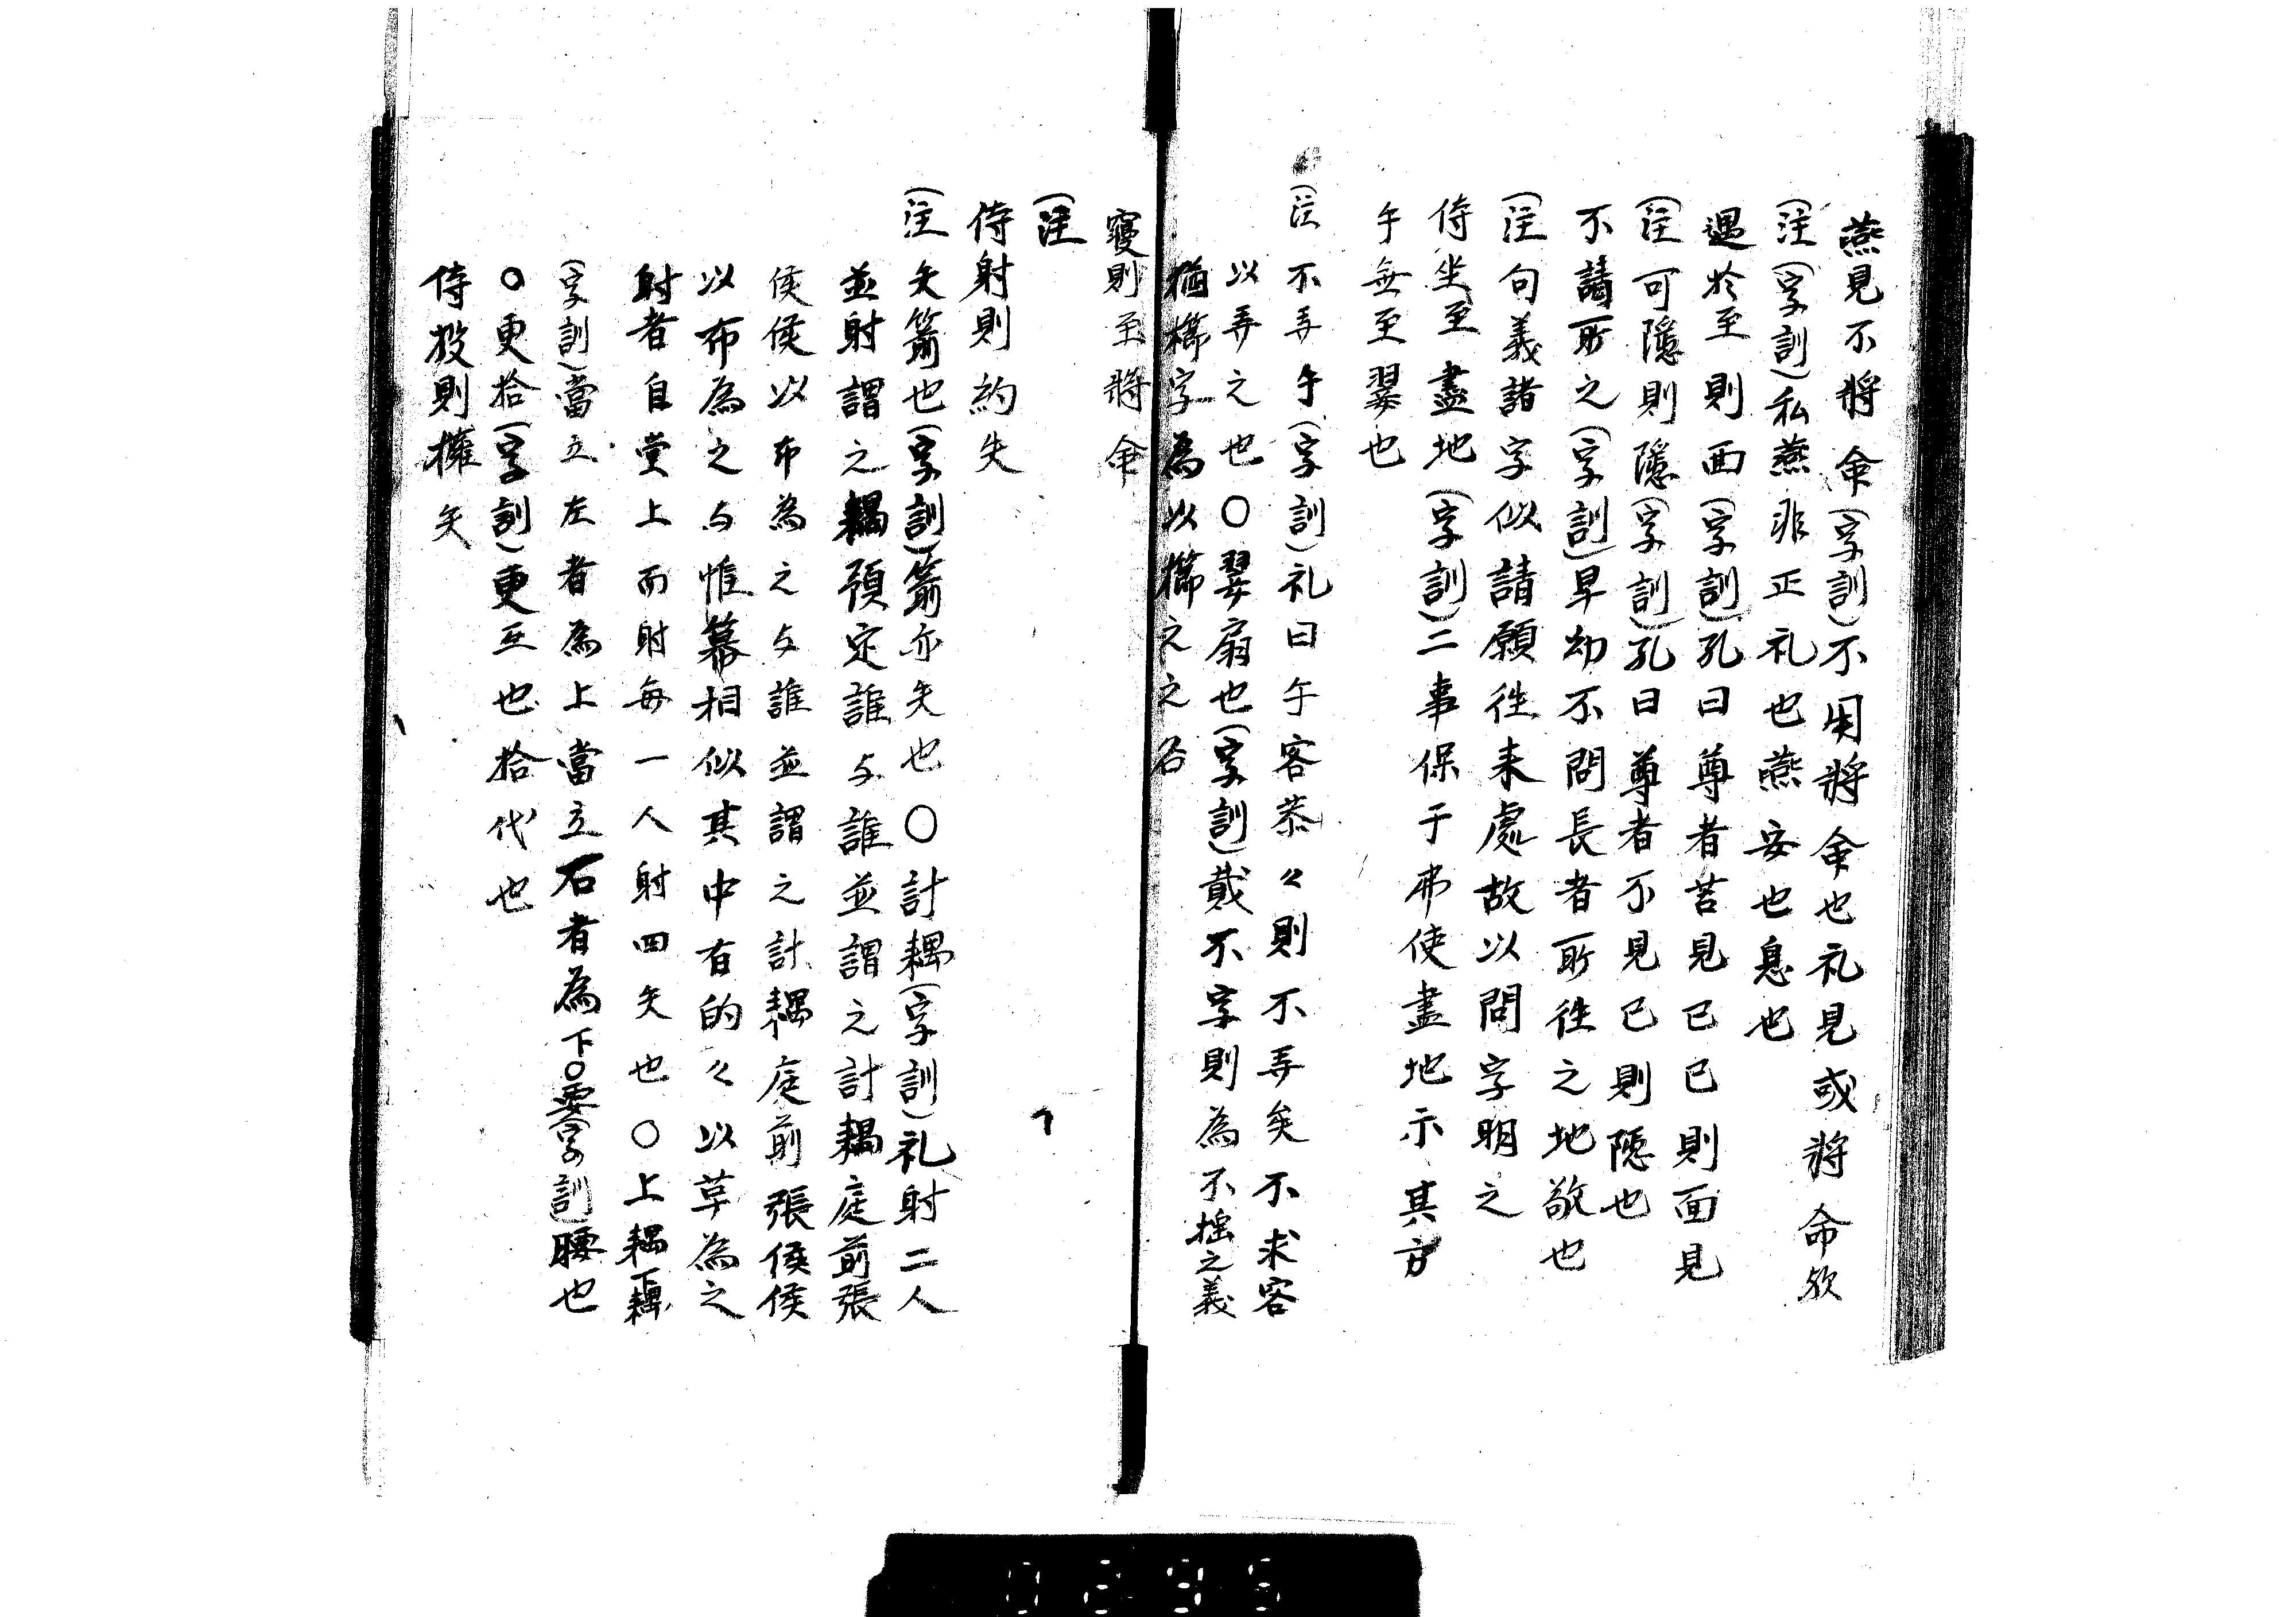 燕見不將命(字訓)不用將命也礼見或將命欤
(注(字訓)私燕非正礼也燕安也息也
遇於至則面(字訓)孔曰尊者苦見已已則面見
(注可隱則隱(字訓)孔曰尊者不見已則隱也
不請所之(字訓)早幼不問長者所往之地敬也
(注句義諸字似請願往来處故以問字明之
侍坐至盡地(字訓)二事保于弗使盡地示其方
手無至翣也
(注不弄手(字訓)礼曰手容恭々則不弄矣不求容
以弄之也〇翣扇也(字訓)戴不字則為不揺之義
猶櫛字為以櫛之之名
寢則至將命
(注
侍射則約矢
(注矢箭也(字訓)箭亦矢也〇計耦(字訓)礼射二人
並射謂之耦預定誰与誰並謂之計耦庭前張
侯侯以布為之与誰並謂之計耦庭前張侯侯
以布為之与惟幕相似其中有的々以草為之
射者自堂上而射每一人射四矢也〇上耦下耦
(字訓)當立左者為上當立石者為下〇要(字訓)腰也
〇更拾(字訓)更互也拾代也
侍投則擁矢